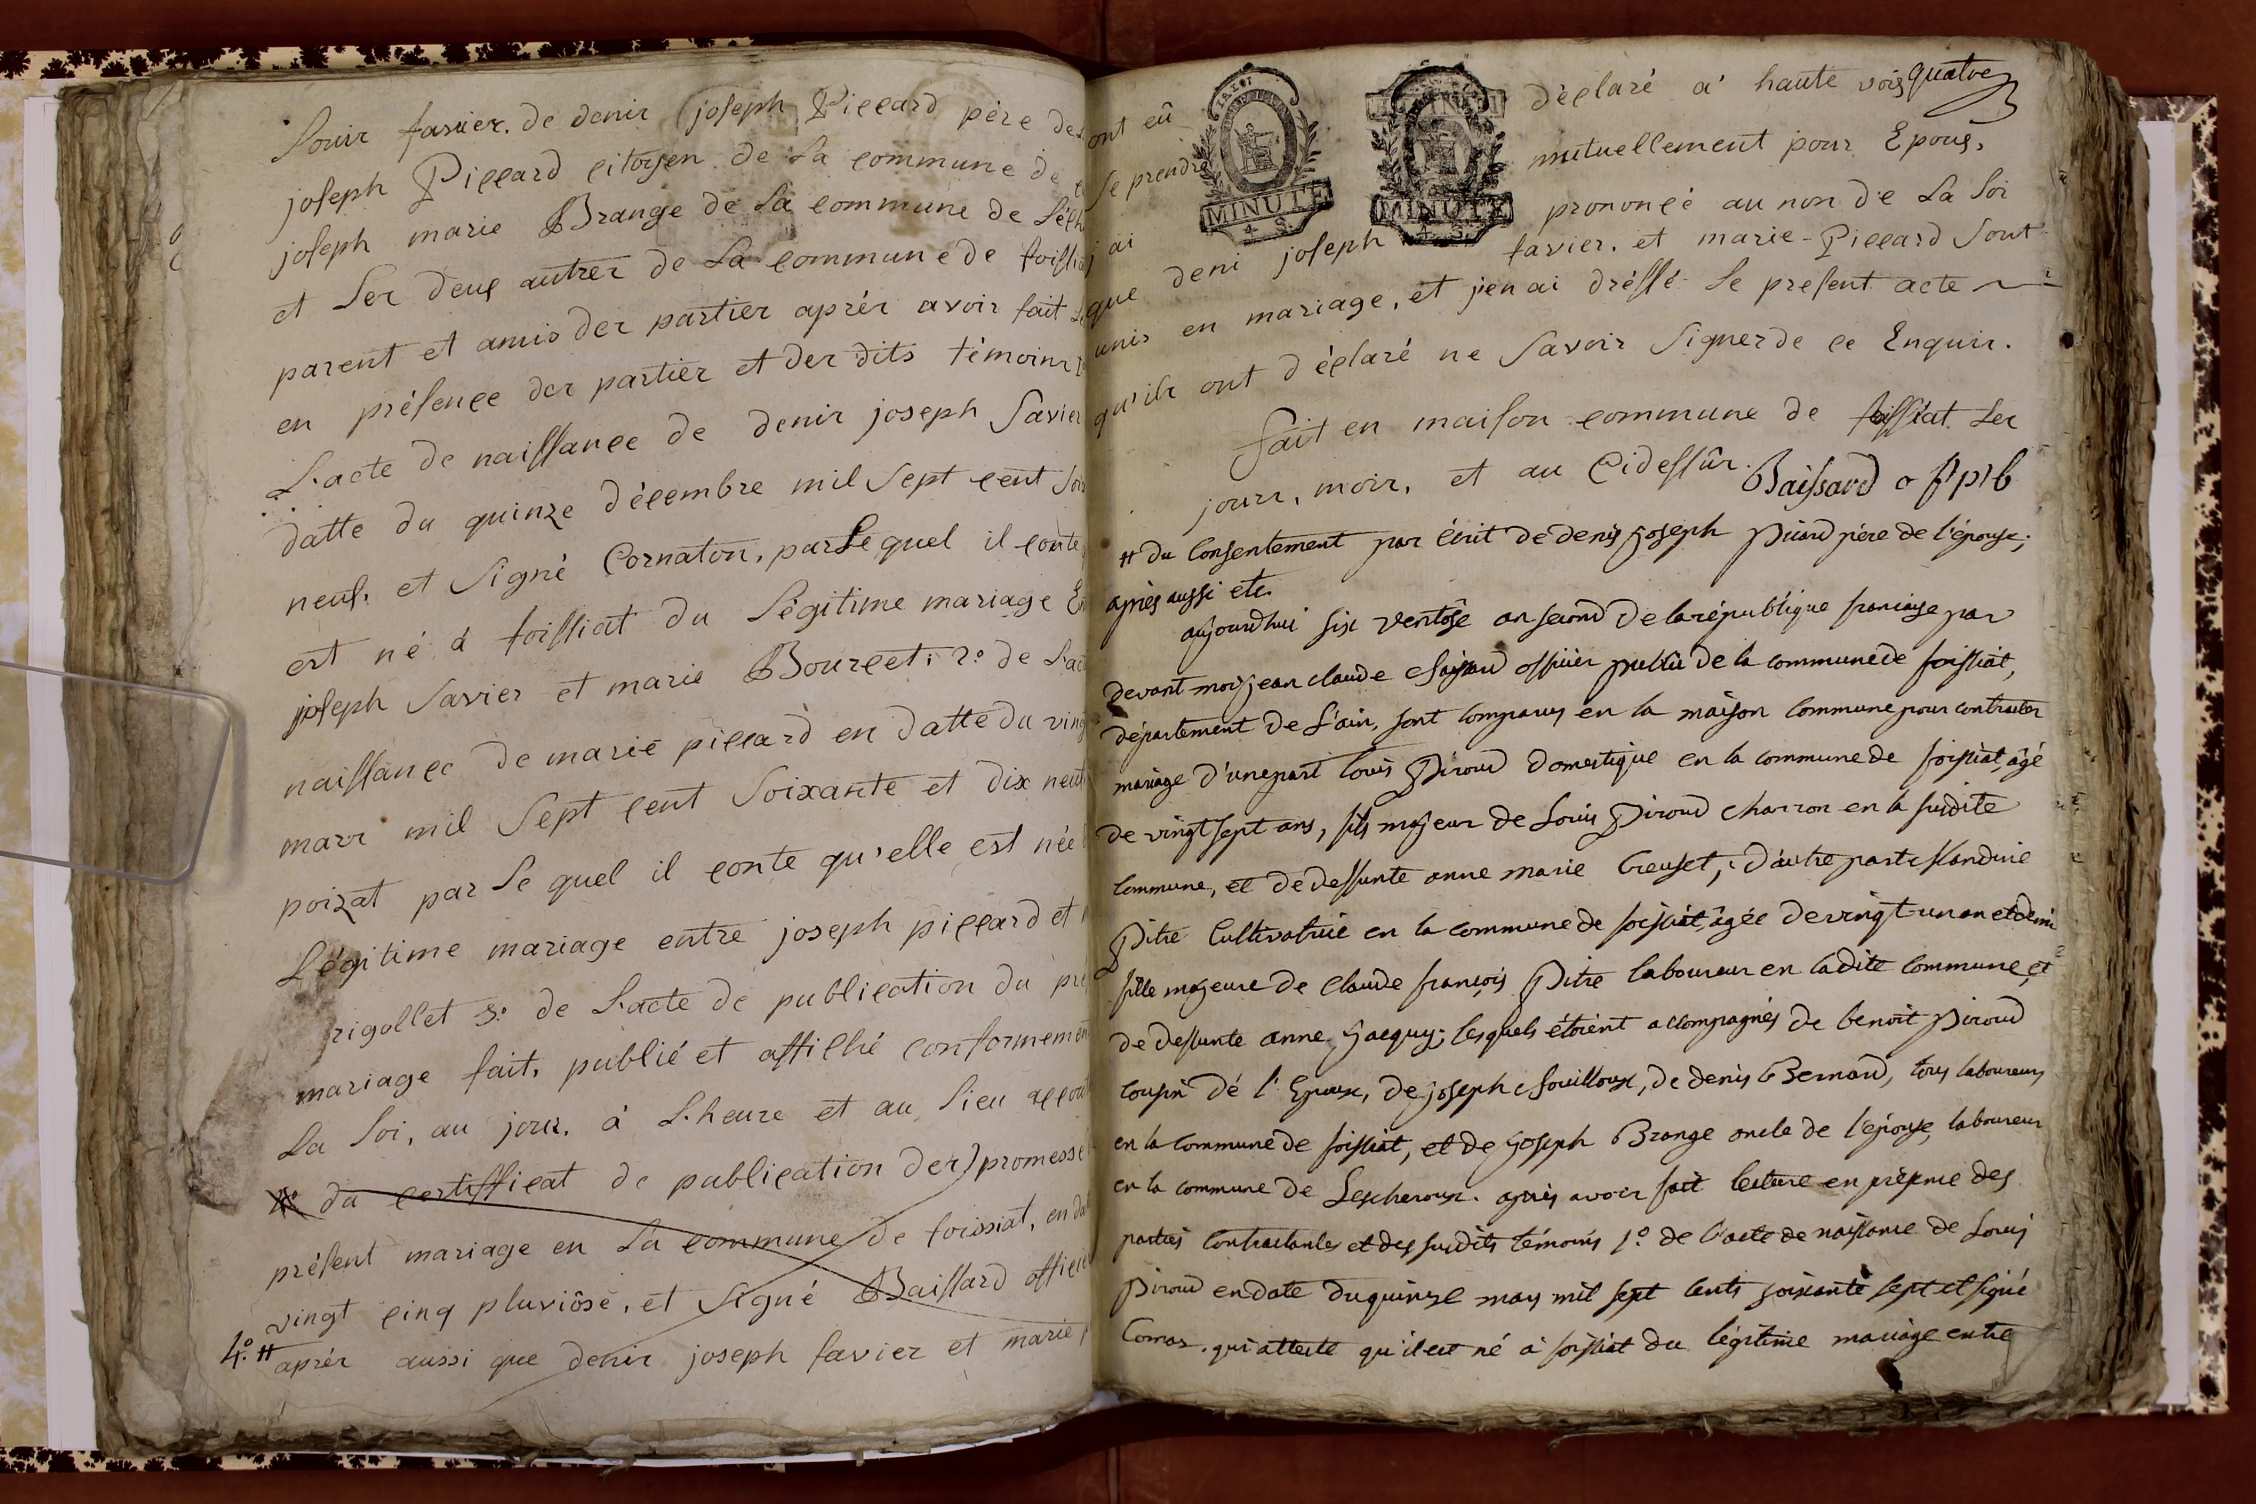 Louis favier. de denis joseph Piccard père de
joseph Piccard citoyen de La commune de
joseph marie Brange de La commune de Léch
et Les deux autres de La commune de foissia
parent et amis des parties après avoir fait
en présence des parties et des dits témoins
L'acte de naissance de denis joseph favier
datte du quinze décembre mil Sept cent Soi
neuf. et Signé Cornaton, par Le quel il conte
est né à foissiat du Légitime mariage
joseph favier et marie Bourcet; 2º de L'ac
naissance de marie piccard en datte du ving
mars mil Sept cent Soixante et dix neuf
poizat par Le quel il conte qu'elle est née
Légitime mariage entre joseph piccard et
rigollet 3º de L'acte de publication du pré
mariage fait, publié et affiché conformement
La Loi, au jour, à L'heure et au Lieu accou
4º du certifficat de publication des promesse
présent mariage en La commune de foissiat, en da
vingt cinq pluviôse, et Signé Baissard officie
4º. # après aussi que denis joseph favier et marie
ont eû déclaré à haute vois quatre
se prendre mutuellement pour Epous,
j'ai prononcé au non de La Loi
que deni joseph favier. et marie Piccard Sont
unis en mariage, et j'en ai dréssé Le present acte
qu'ils ont déclaré ne Savoir Signer de ce Enquis.
fait en maison commune de foissiat Les
jours, mois, et an Cidessûs. Baissard
MINUTE
4 S.
MINUTE
4 S.
# du Consentement par écrit de denis joseph picard père de l'épouse;
après aussi etc.
aujourdhui six ventôse an second de la république francaise par
devant moi jean claude Baissard officier public de la commune de foissiat,
département de L'ain, sont comparus en la maison commune pour contracter
mariage d'une part Louis Piroud domestique en la commune de foissiat, âgé
de vingt sept ans, fils majeur de Louis Piroud charron en la susdite
commune, et de deffunte anne marie Creuset; d'autre part Clandine
Pitre Cultivatrice en la commune de foissiat, âgée de vingt-un an et demi
fille majeure de Claude françois Pitre laboureur en la dite commune, et
de deffunte anne Jacquy; lesquels étoient accompagnés de benoit Piroud
cousin dé l'Epoux, de joseph fouilloux, de denis Bernard, tous laboureurs
en la commune de foissiat, et de joseph Brange oncle de l'épouse, laboureur
en la commune de Lescheroux. après avoir fait lecture en présence des
parties Contractantes et des susdits témoins 1º de l'acte de naissance de Louis
Piroud en date du quinze mars mil sept cents soixante sept et signé
Comas. qui atteste qu'il est né à foissiat du légitime mariage entre